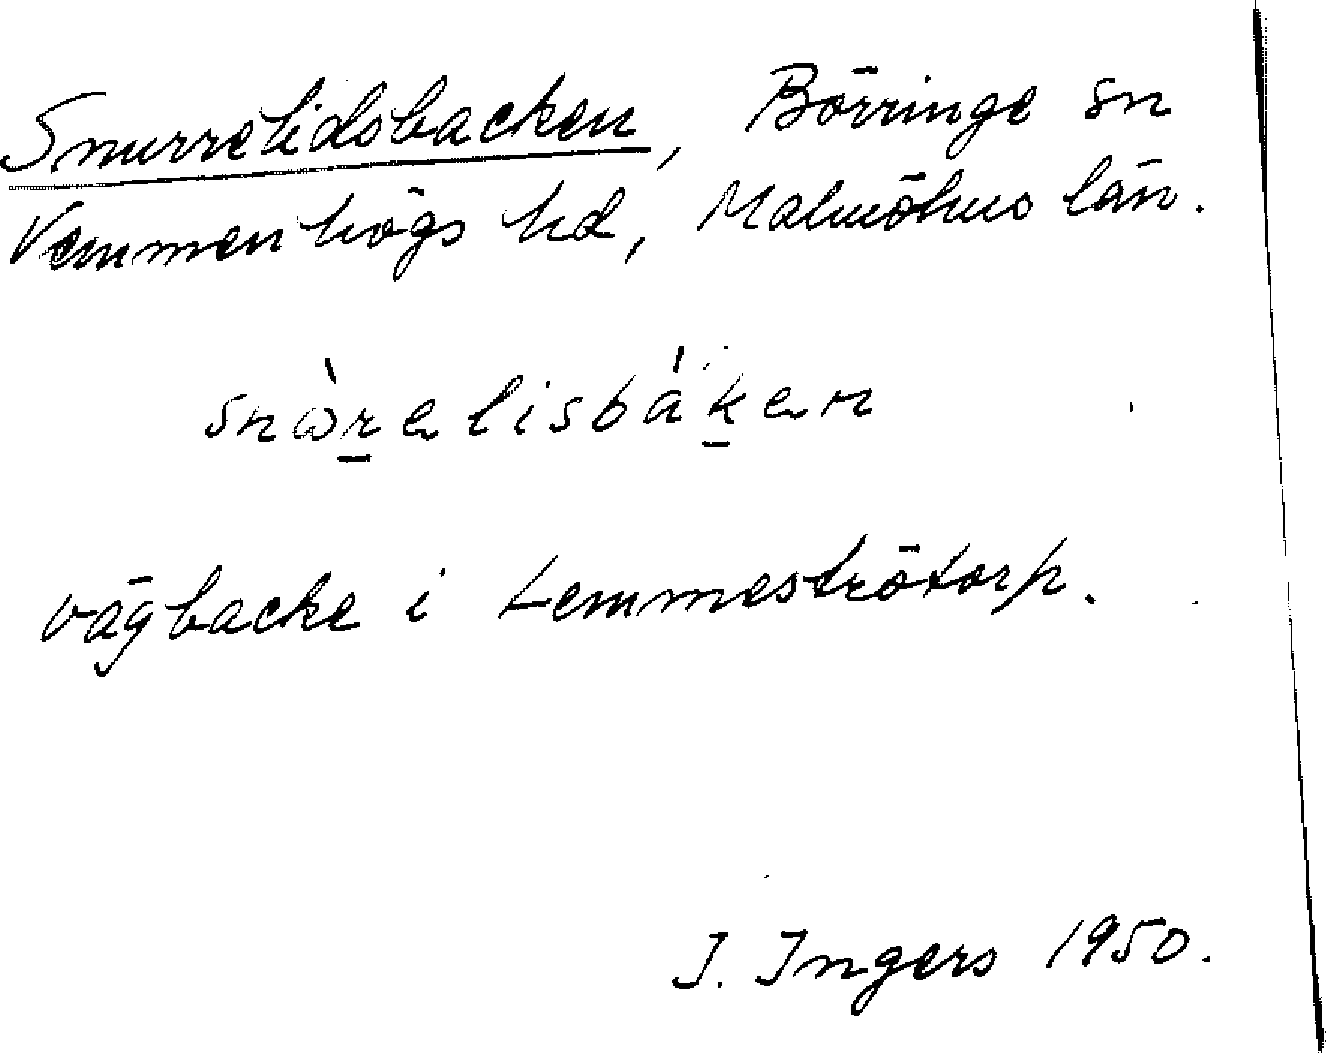 Snurrelidsbacken, Börringe sn
Vemmenhögs hd, Malmöhus län.
snὼr̲elisbák̲en
vägbacke i Lemmeströtorp.
I. Ingers 1950.